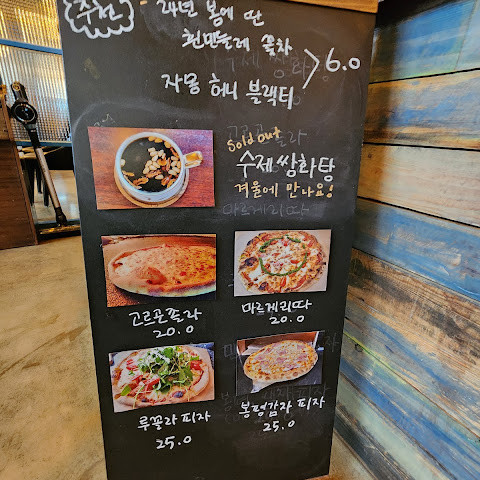 추천
24년 봄에 딴
흰민들레 꽃차
자몽 허니 블랙티
> 6.0
Sold out
수제 쌍화탕
겨울에 만나요!
고르곤졸라
20.0
마르게리따
20.0
루꼴라 피자
25.0
봉평감자 피자
25.0